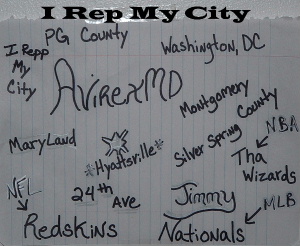 I Rep My City
PG County
Washington, DC
I Repp
My
City
AvirexMD
Montgomery
County
Maryland
*Hyattsville*
Silver Spring
NBA
Tha
Wizards
NFL
24th
Ave
Jimmy
MLB
Redskins
Nationals